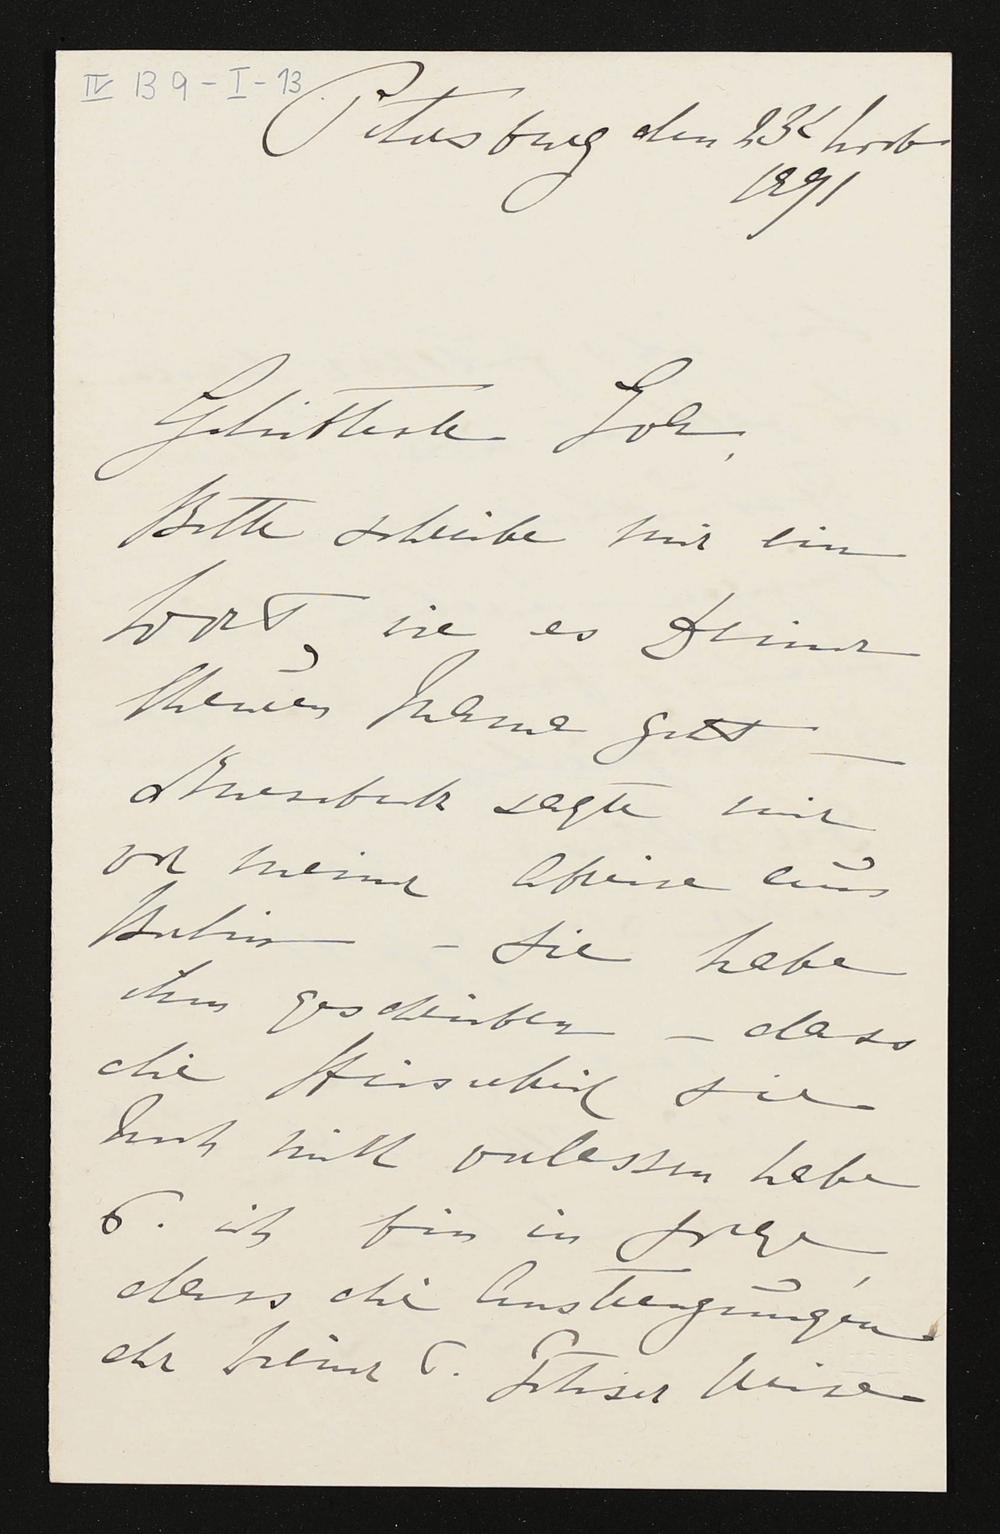 IV 139-I-13
Petersburg den 23t Novb
1891
Geliebteste
Bitte schreibe mir ein
Wort, wie es Deiner
theuren Mama geht —
sagte mir
vor meiner Abreise aus
Berlin — Sie habe
ihm geschrieben — dass
die Heiserkeit sie
noch nicht verlassen habe
u. ich bin in Sorge,
dass die Anstrengungen
der Wiener u. Reise